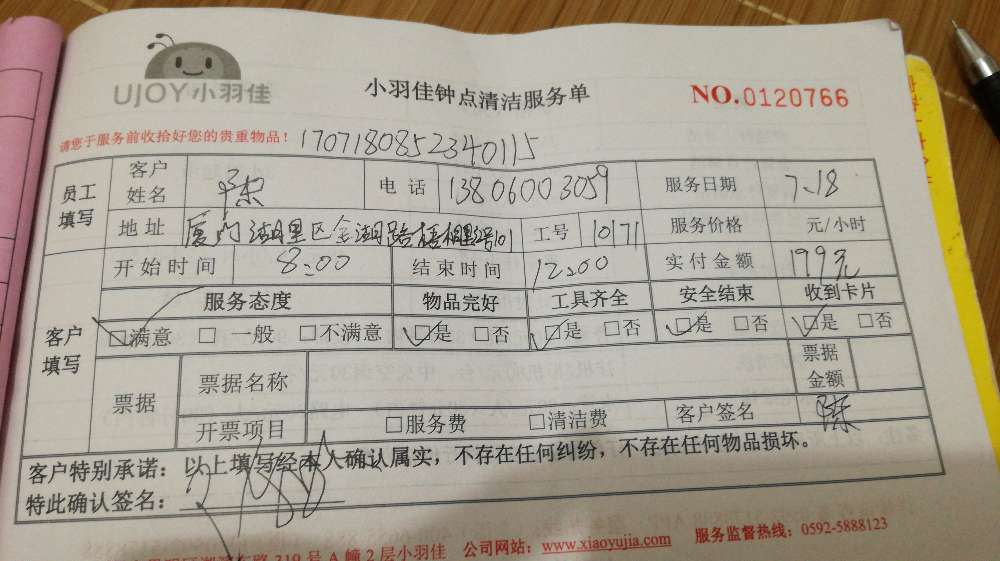 UJOY小羽佳
小羽佳钟点清洁服务单
NO.0120766
请您于服务前收拾好您的贵重物品!
1707180852340115
员工填写 客户姓名 电话 13806003059 服务日期 7.18
地址 厦门湖里区金湖路 101 工号 10171 服务价格 元/小时
客户填写 开始时间 8:00 结束时间 12:00 实付金额 199元
服务态度 物品完好 工具齐全 安全结束 收到卡片
□满意 □一般 □不满意 □是 □否 □是 □否 □是 □否 □是 □否
票据 票据名称 票据金额
开票项目 □服务费 □清洁费 客户签名 陈
客户特别承诺:以上填写经本人确认属实,不存在任何纠纷,不存在任何物品损坏。
特此确认签名:
路319号A幢2层小羽佳 公司网站:www.xiaoyujia.com 服务监督热线:0592-5888123